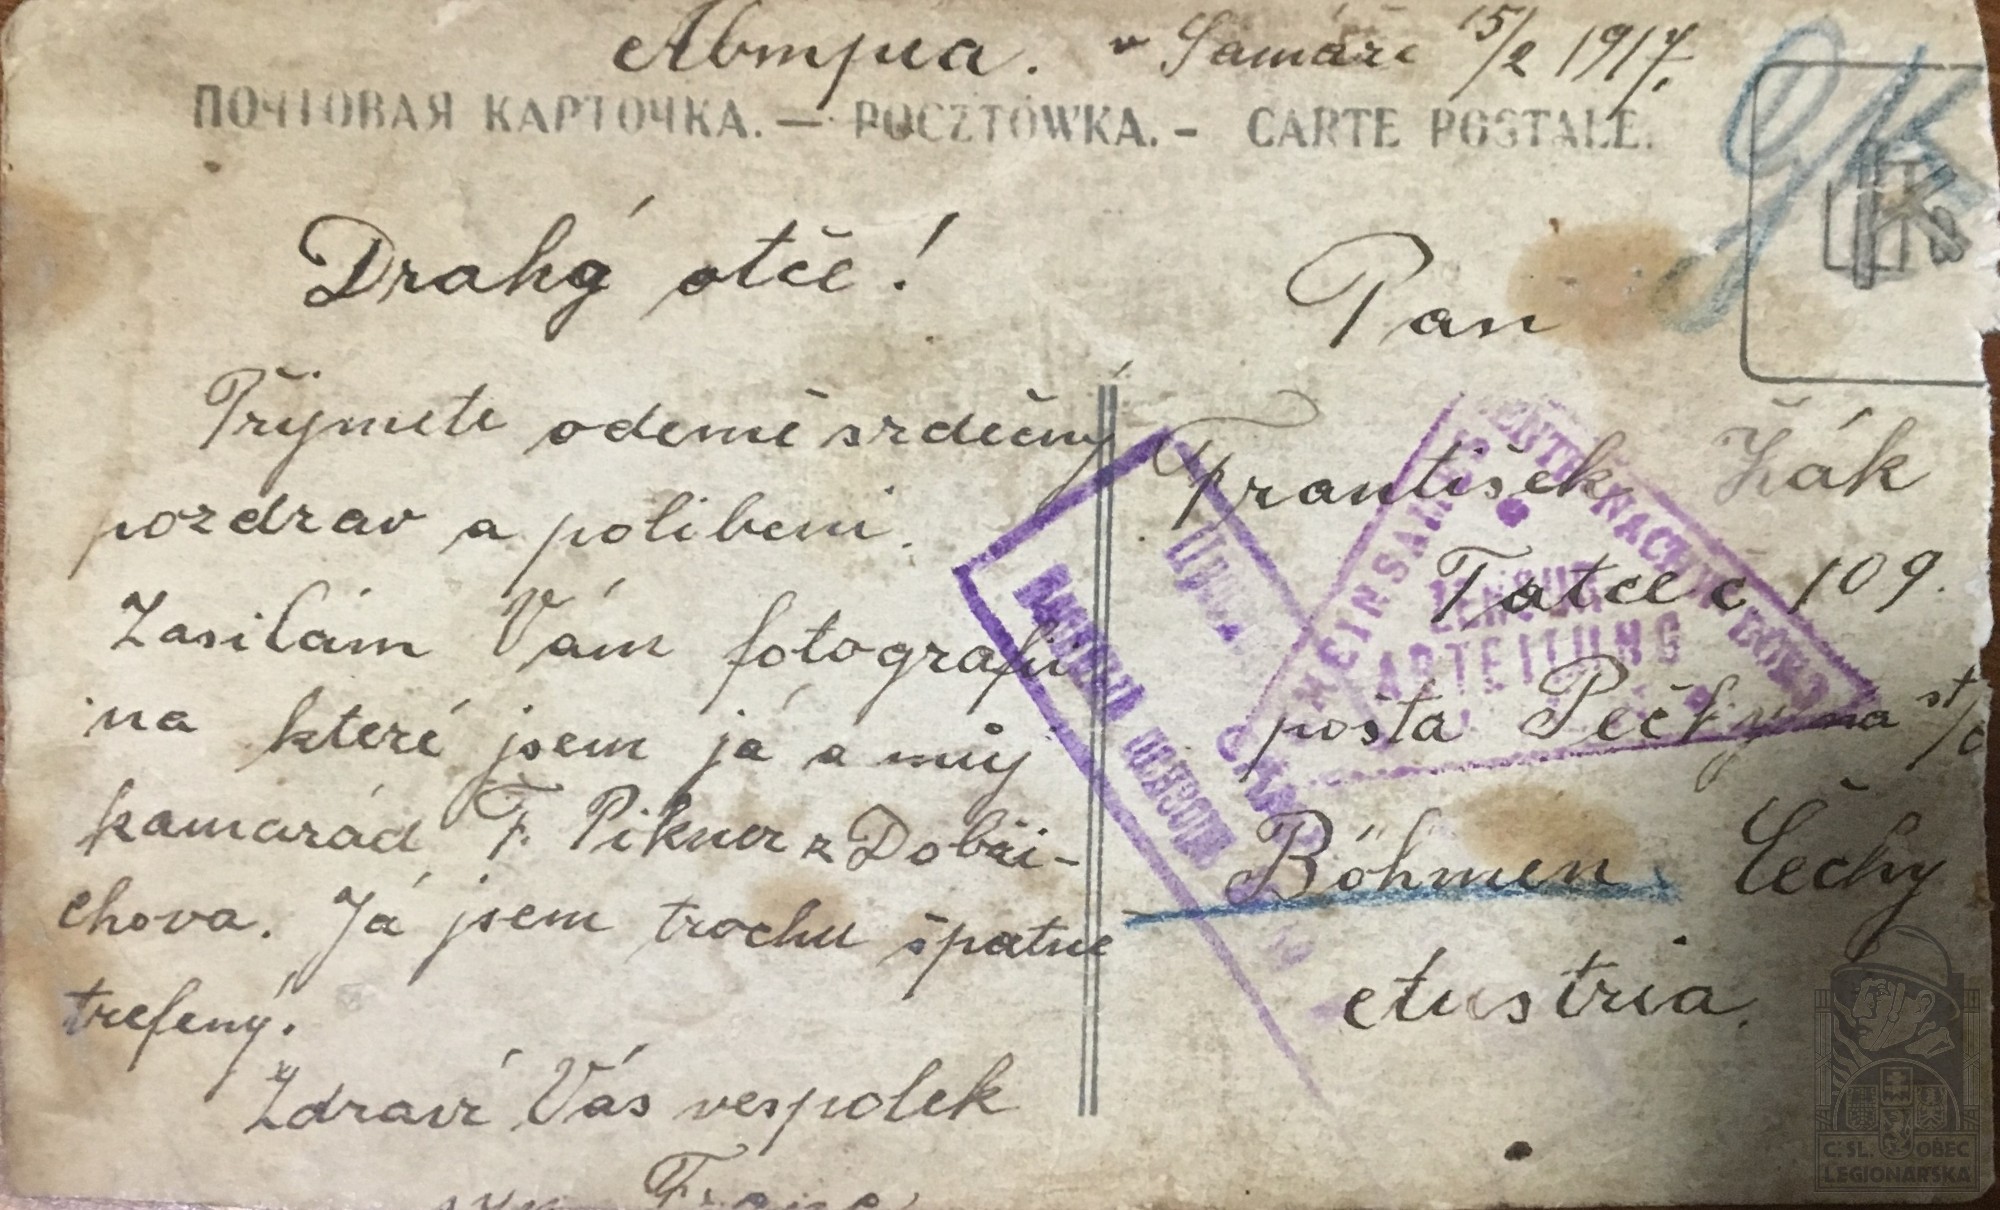 Австрiа. v Samáře 15/2 1917.
ПОЧТОВАЯ КАРТОЧКА. — POCZTÓWKA. – CARTE POSTALE.
Drahý otče!
Přijmete odemě srdečný
pozdrav a polibeni.
Zasilám Vám fotografii
na které jsem já a můj
kamarád F. Pikner z Dobři-
chova. Já jsem trochu špatne
trefený.
Zdraví Vás vespolek
syn Franc
Pan
František Žák
Tatce č 109.
pošta Pečky na st/d
Böhmen Čechy
Austria.
ZENSUR
ABTEILUNG
Č: SL. OBEC
LEGIONÁŘSKÁ